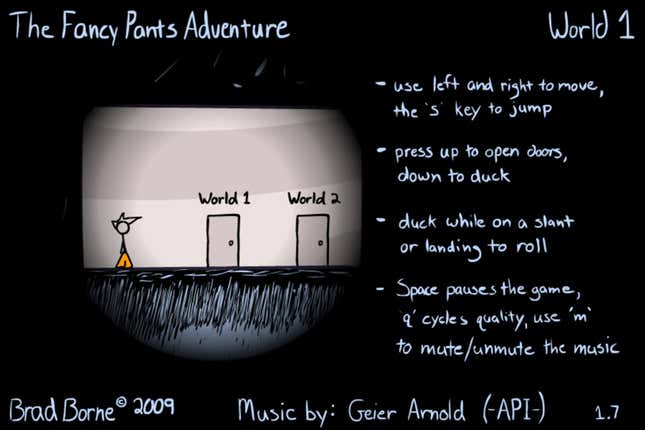 The Fancy Pants Adventure
World 1
- use left and right to move,
the 's' key to jump
- press up to open doors,
down to duck
World 1
World 2
- duck while on a slant
or landing to roll
- Space pauses the game,
'q' cycles quality, use 'm'
to mute/unmute the music
Brad Borne© 2009
Music by: Geier Arnold (-API-)
1.7